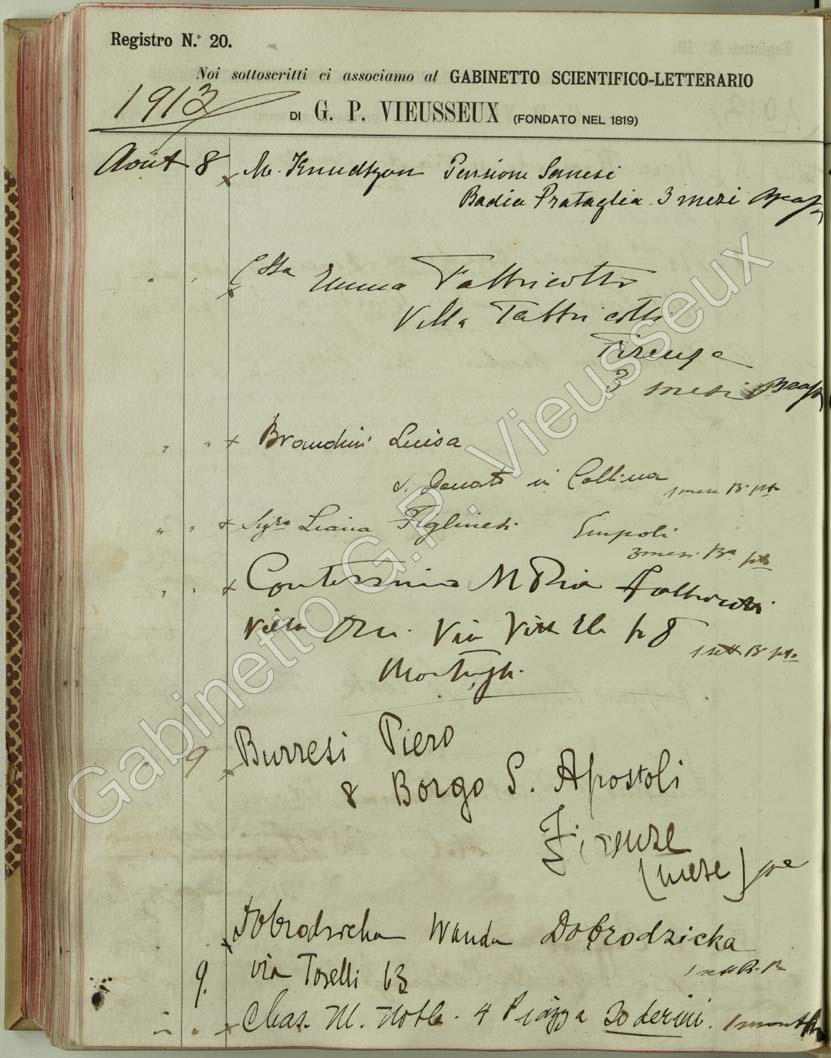 Registro N.° 20.
Noi sottoscritti ci associamo al GABINETTO SCIENTIFICO-LETTERARIO
1913
DI G. P. VIEUSSEUX (FONDATO NEL 1819)
Août 8 M. Knudtzon Pensione
Badia Prataglia 3 mesi
Emma Fabbricotti
Villa Fabbricotti
Firenze
3 mesi
Brandini Luisa
S. Donato in Collina
Liana Empoli
3 mesi
Contessina M Pia Fabbricotti
Villa Via Vitt
9 Burresi Piero
8 Borgo S. Apostoli
Firenze
(mese)
Dobrodzicka Wanda Dobrodzicka
9. via Toselli 63
Chas. M. 4 Piazza Soderini. 1 month
Gabinetto G.P. Vieusseux